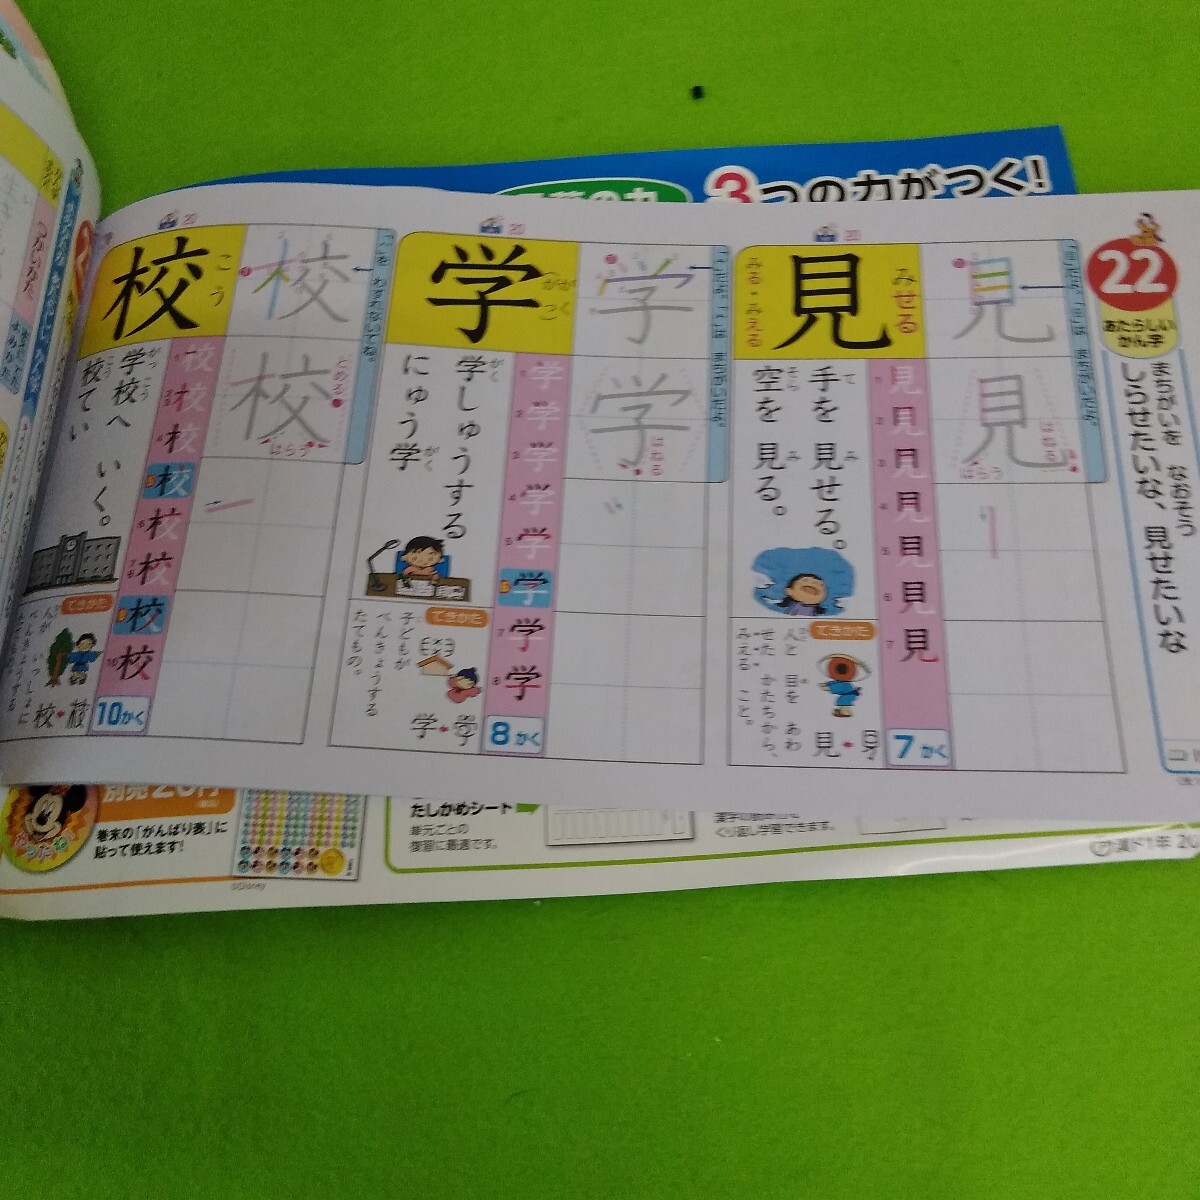 3つの力がつく!
22
あたらしい
かん字
まちがいを なおそう
しらせたいな、見せたいな
20
見
みせる
みる・みえる
見
見
はねる
はらう
手を 見せる。
て み
空を 見る。
そら み
1 見
2 見
3 見
4 見
5 見
6 見
7 見
7かく
できかた
人と 目を あわ
せた かたちから、
みえる こと。
見
20
学
がく
学
学
はねる
学しゅうする
がく
にゅう学
がく
1 学
2 学
3 学
4 学
5 学
学
7 学
8 学
8かく
できかた
子どもが
べんきょうする
たてもの。
学・
20
校
こう
「、」を わすれないでね。
校
校
とめる
はらう
学校へ いく。
がっ こう
校てい
こう
校
校
4 校
5 校
6 校
校
9 校
10 校
10かく
できかた
いっしょに
べんきょうする
校・
別売
巻末の「がんばり表」に
貼って使えます!
©Disney
たしかめシート
単元ごとの
復習に最適です。
くり返し学習できます。
漢ド1年 20